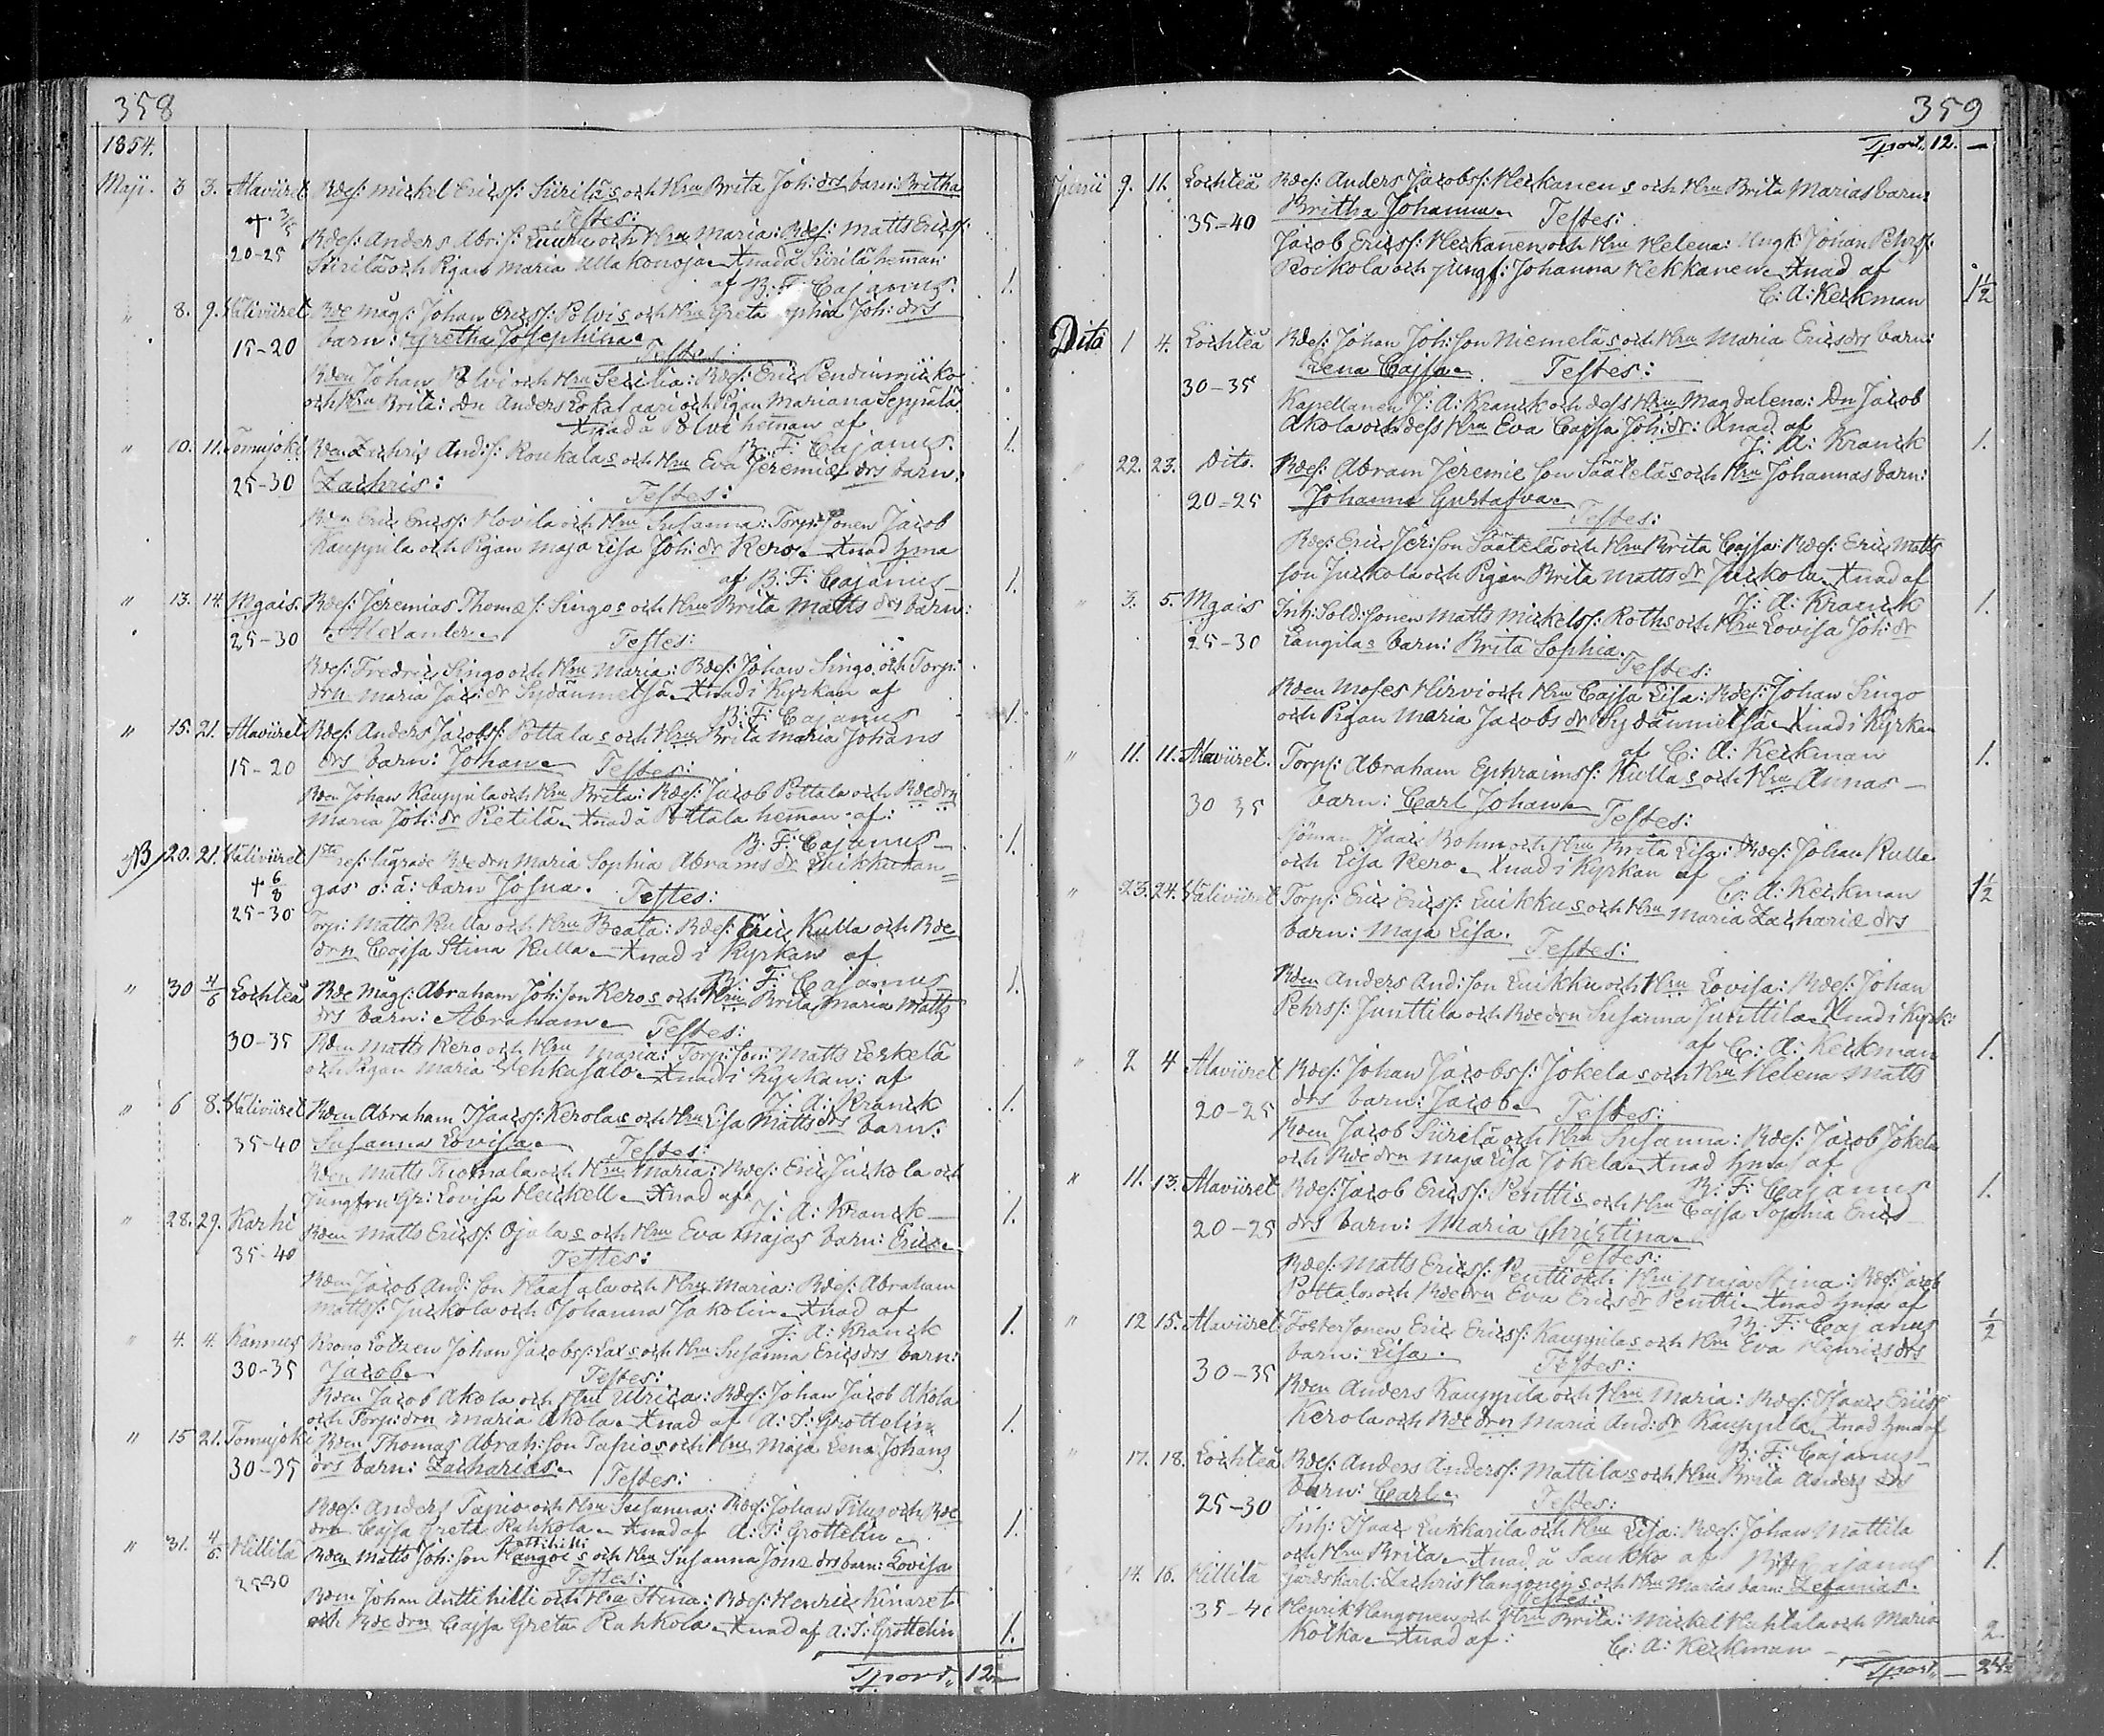 358
1854.
Maji. 3 3. Alaviiret Rdes: Mickel Erics: Siirilä s och Hru Brita Joh: drs barn: Britha
+ 3/5 Testes:
Rdes: Anders Abr: s: Luuru och Hru Maria: Rdes: Matts Erics:
20-25 Siirilä och Pigan Maria Ulla Konoja Xnad å Siirilä heman
af B: F: Cajanus. 1.
" 8. 9. Väliviiret Bde Måg: Johan Erics: Polvi s och Hru Greta Sophia Joh: drs
15-20 barn: Gretha Josephina
Testes:
Bden Johan Polvi och Hru Secilia: Rdes: Eric Pentinmiko
och Hru Brita: Dn Anders Lokalaari och Pigan Mariana Seppälä
Xnad å Polvi heman af
B: F: Cajanus. 1.
" 10. 11. Tomujoki Bden Zachris And: s: Roukala s och Hru Eva Jeremiæ drs barn:
25-30 Zachris: Testes:
Bden Eric Erics: Hovila och Hru Susanna: Torp: Sonen Jacob
Kauppila och Pigan Maja Lisa Joh: dr Kero Xnad hma
af B: F: Cajanus 1.
" 13. 14. Mgais. Rdes: Jeremias Thomæ s: Singo s och Hru Brita Matts drs barn:
25-30 Alexander Testes:
Bdes: Fredric Singo och Hru Maria: Bdes: Johan Singo och Torp:
drn Maria Jac: dr Sydänmetsä Xnad i Kyrkan af
B: F: Cajanus 1.
" 15. 21. Alaviiret Rdes: Anders Jacobs: Pottala s och Hru Brita Maria Johans
15-20 drs barn: Johan Testes:
Bden Johan Kauppila och Hru Brita: Rdes: Jacob Pottala och Bdedrn
Maria Joh: dr Pietilä Xnad å Pottala heman af:
B: F: Cajanus 1.
NB 20. 21. Väliviiret 1ste res: lägrade Bdedrn Maria Sophia Abrams dr Luikkukan=
+ 6/8 gas o: ä: barn Josua. Testes:
25-30 Torp: Matts Kulla och Hru Beata: Rdes: Eric Kulla och Bde
drn Cajsa Stina Kulla Xnad i Kyrkan af
B: F: Cajanus 1.
" 30 4/6 Lochteå Bde Måg: Abraham Joh: son Kero s och Hru Brita Maria Matts
drs barn: Abraham Testes:
30-35 Bden Matts Kero och Hru Maria: Torp: son: Matts Leskelä
och Pigan Maria Vehkasalo Xnad i Kyrkan: af
J: A: Kranck 1.
" 6 8. Väliviiret Bden Abraham Isaacs: Kerola s och Hru Lisa Matts drs barn:
35-40 Susanna Lovisa Testes:
Bden Matts Tuomala och Hru Maria: Rdes: Eric Juckola och
Jungfru Gr: Lovisa Heickell Xnad af
J: A: Kranck 1.
" 28. 29. Karhi Bden Matts Erics: Ojala s och Hru Eva Majas barn: Eric
35-40 Testes:
Bden Jacob And: son Haasala och Hru Maria: Bdes: Abraham
Matts: Juckola och Johanna Jakolin Xnad af
J: A: Kranck 1.
" 4. 4. Kannus Krono Lotsen Johan Jacobs: Lax s och Hru Susanna Erics drs barn:
30-35 Jacob Testes:
Bden Jacob Akola och Hru Ulrica: Rdes: Johan Jacob Akola
och Torp: drn Maria Akola Xnad af A: I: Grottelin 1.
" 15 21. Tomujoki Bden Thomas Abrah: son Tapio s och Hru Maja Lena Johans
30-35 drs barn: Zacharias Testes:
Rdes: Anders Tapio och Hru Susanna: Rdes: Johan Titus och Bde
drn Cajsa Greta Rahkola Xnad af A: I: Grottelin 1.
" 31. 4/6. Hillilä Bden Matts Joh: son Hangoi s och Hru Susanna Jonæ drs barn: Lovisa
25-30 Testes:
Bden Johan Anttihilli och Hru Stina: Rdes: Henric Kinaret
och Bdedrn Cajsa Greta Rahkola Xnad af A: I: Grottelin 1.
Tport. 12 –
359
Tport. 12. –
Junii 9. 11. Lochteå Rdes: Anders Jacobs: Heikanen s och Hru Brita Marias barn:
35-40 Britha Johanna Testes:
Jacob Erics: Heikanen och Hru Helena: Ungk: Johan Pehrs:
Roikola och Jungf: Johanna Hekkanen Xnad af
C: A: Keckman 1½
Dito 1 4. Lochteå Rdes: Johan Joh: son Niemelä s och Hru Maria Erics drs barn:
30-35 Lena Cajsa Testes:
Kapellanen J: A: Kranck och dess Hru Magdalena: Dn Jacob
Akola och dess Hru Eva Cajsa Joh: dr: Xnad af
J: A: Kranck 1.
" 22. 23. Dito. Rdes: Abram Jeremie son Säätelä s och Hru Johannas barn:
20-25 Johanna Gustafva
Testes:
Rdes: Eric Jer: son Säätelä och Hru Brita Cajsa: Rdes: Eric Matts
son Juckola och Pigan Brita Matts dr Juckola Xnad af
J: A: Kranck 1.
" 3. 5. Mgais Inh: Sold: Sonen Matts Mickels: Roth s och Hru Lovisa Joh: dr
25-30 Langila s barn: Brita Sophia.
Testes:
Bden Moses Hirvi och Hru Cajsa Lisa: Rdes: Johan Singo
och Pigan Maria Jacobs dr Sydänmetsä Xnad i Kyrkan
af C: A: Keckman 1.
" 11. 11. Alaviiret. Torp: Abraham Ephraims: Kulla s och Hru Annas
30 35 barn: Carl Johan Testes:
Sjöman Isaac Bohm och Hru Brita Lisa: Rdes: Johan Kulla
och Lisa Kero Xnad i Kyrkan af
C: A: Keckman 1½
" 23. 24. Väliviiret Torp: Eric Erics: Luikku s och Hru Maria Zachariæ drs
barn: Maja Lisa. Testes:
Bden Anders And: son Luikku och Hru Lovisa: Rdes: Johan
Pehrs: Junttila och Bdedrn Susanna Junttila Xnad i Kyrk:
af C: A: Keckman 1.
" 2 4 Alaviiret Rdes: Johan Jacobs: Jokela s och Hru Helena Matts
20-25 drs barn: Jacob Testes:
Bden Jacob Siirilä och Hru Susanna: Rdes: Jacob Jokela
och Bdedrn Maja Lisa Jokela Xnad hma af
B: F: Cajanus 1.
" 11. 13. Alaviiret Rdes: Jacob Erics: Pentti s och Hru Cajsa Sophia Erics
20-25 drs barn: Maria Christina
Testes:
Rdes: Matts Erics: Pentti och Hru Maja Stina: Rdes: Jacob
Pottala och Bdedrn Eva Erics dr Pentti Xnad hma af
B: F: Cajanus ½
" 12 15. Alaviiret Fostersonen Eric Erics: Kauppila s och Hru Eva Henrics drs
barn: Lisa. Testes:
30-35 Bden Anders Kauppila och Hru Maria: Rdes: Isaac Erics:
Kerola och Bdedrn Maria And: dr Kauppila Xnad hma af
B: F: Cajanus
" 17. 18. Lochteå Rdes: Anders Anders: Mattila s och Hru Brita Anders drs
barn: Carl Testes:
25-30 Inh: Isaac Lukkarila och Hru Lisa: Rdes: Johan Mattila
och Hru Brita Xnad å Saukko af B: F: Cajanus 1.
14. 16. Hillilä Gårdskarl: Zachris Hangonen s och Hru Marias barn: Zefanias.
Testes:
35-40 Henrik Hangonen och Hru Brita: Mickel Huhtala och Maria
Kolka Xnad af: C: A: Keckman 2
Tport. – 24½